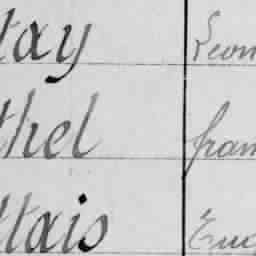 tay Leon
thel fran
ttais Eug